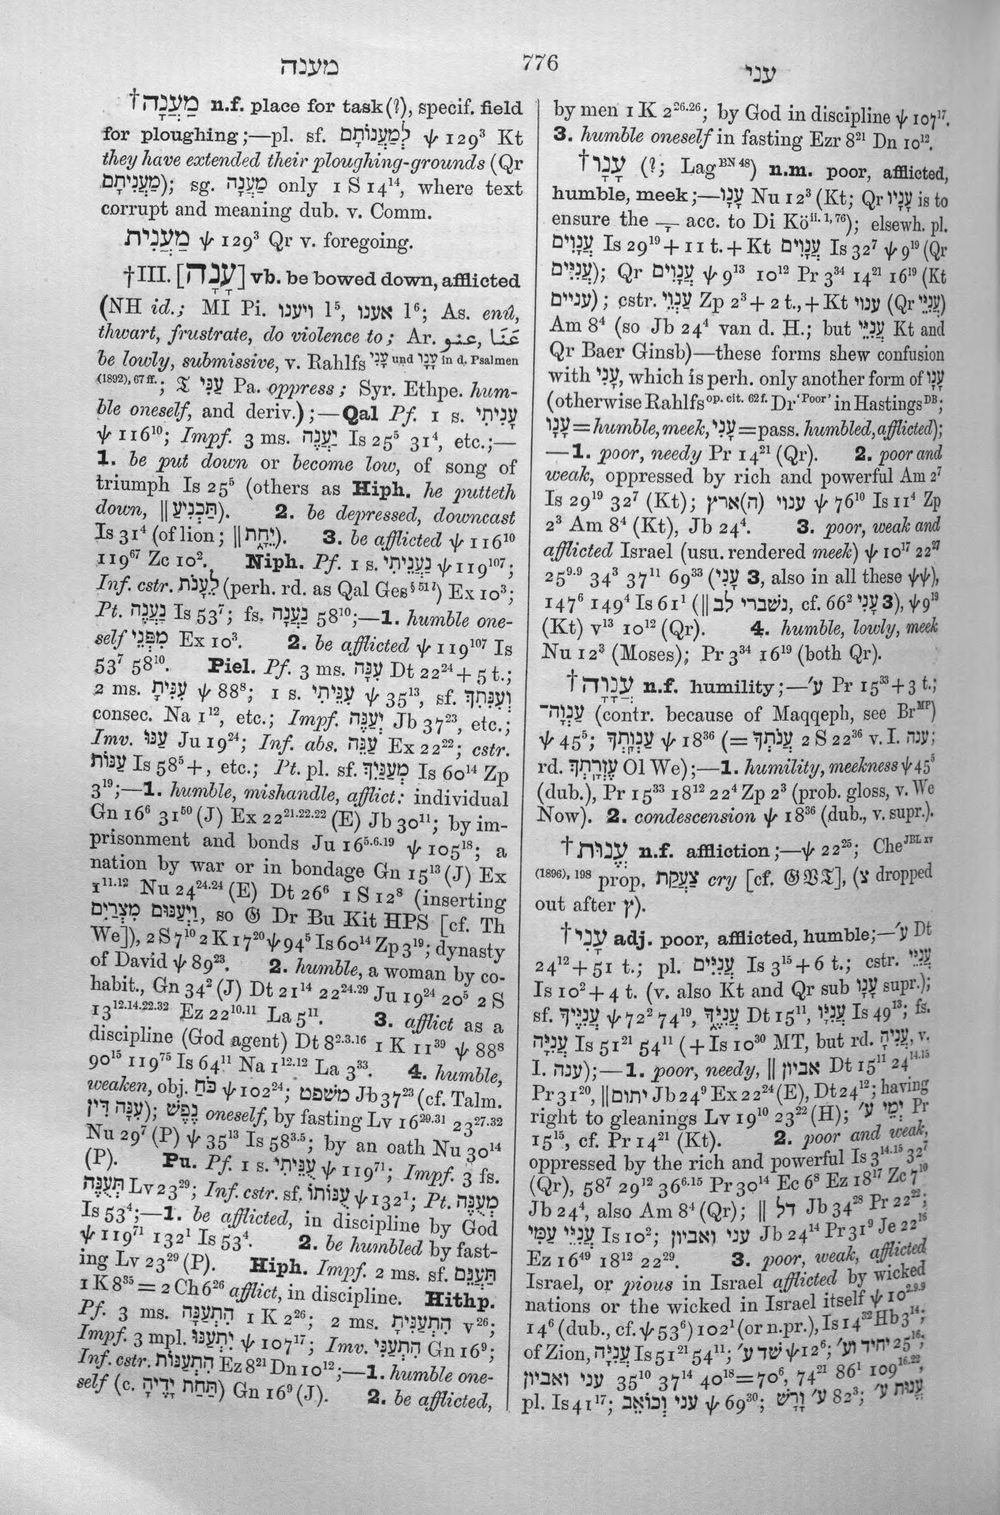 מענה
776
עני
†מַעֲנָה n.f. place for task(?), specif. field
for ploughing;—pl. sf. לְמַעֲנוֹתָם ψ 129³ Kt
they have extended their ploughing-grounds (Qr
מַעֲנִיתָם); sg. מַעֲנָה only 1 S 14¹⁴, where text
corrupt and meaning dub. v. Comm.
מַעֲנִית ψ 129³ Qr v. foregoing.
†III. [עָנָה] vb. be bowed down, afflicted
(NH id.; MI Pi. ויענו 1⁵, אענו 1⁶; As. enû,
thwart, frustrate, do violence to; Ar. عنو, عَنَا
be lowly, submissive, v. Rahlfs עָנִי und עָנָו in d. Psalmen
(1892), 67 ff.; 𝔗 עַנִּי Pa. oppress; Syr. Ethpe. hum-
ble oneself, and deriv.);—Qal Pf. 1 s. עָנִיתִי
ψ 116¹⁰; Impf. 3 ms. יַעֲנֶה Is 25⁵ 31⁴, etc.;—
1. be put down or become low, of song of
triumph Is 25⁵ (others as Hiph. he putteth
down, ‖ תַּכְנִיעַ). 2. be depressed, downcast
Is 31⁴ (of lion; ‖ יֵחָת). 3. be afflicted ψ 116¹⁰
119⁶⁷ Zc 10². Niph. Pf. 1 s. נַעֲנֵיתִי ψ 119¹⁰⁷;
Inf. cstr. לֵעָנֹת (perh. rd. as Qal Ges§ 51 l) Ex 10³;
Pt. נַעֲנֶה Is 53⁷; fs. נַעֲנָה 58¹⁰;—1. humble one-
self מִפְּנֵי Ex 10³. 2. be afflicted ψ 119¹⁰⁷ Is
53⁷ 58¹⁰. Piel. Pf. 3 ms. עִנָּה Dt 22²⁴ + 5 t.;
2 ms. עִנִּיתָ ψ 88⁸; 1 s. עִנֵּיתִי ψ 35¹³, sf. וְעִנִּתִךְ
consec. Na 1¹², etc.; Impf. יְעַנֶּה Jb 37²³, etc.;
Imv. עַנּוּ Ju 19²⁴; Inf. abs. עַנֵּה Ex 22²²; cstr.
עַנּוֹת Is 58⁵ +, etc.; Pt. pl. sf. מְעַנַּיִךְ Is 60¹⁴ Zp
3¹⁹;—1. humble, mishandle, afflict: individual
Gn 16⁶ 31⁵⁰ (J) Ex 22²¹·²²·²² (E) Jb 30¹¹; by im-
prisonment and bonds Ju 16⁵·⁶·¹⁹ ψ 105¹⁸; a
nation by war or in bondage Gn 15¹³ (J) Ex
1¹¹·¹² Nu 24²⁴·²⁴ (E) Dt 26⁶ 1 S 12⁸ (inserting
וַיְעַנּוּם מִצְרַיִם, so 𝔊 Dr Bu Kit HPS [cf. Th
We]), 2 S 7¹⁰ 2 K 17²⁰ ψ 94⁵ Is 60¹⁴ Zp 3¹⁹; dynasty
of David ψ 89²³. 2. humble, a woman by co-
habit., Gn 34² (J) Dt 21¹⁴ 22²⁴·²⁹ Ju 19²⁴ 20⁵ 2 S
13¹²·¹⁴·²²·³² Ez 22¹⁰·¹¹ La 5¹¹. 3. afflict as a
discipline (God agent) Dt 8²·³·¹⁶ 1 K 11³⁹ ψ 88⁸
90¹⁵ 119⁷⁵ Is 64¹¹ Na 1¹²·¹² La 3³³. 4. humble,
weaken, obj. כֹּחַ ψ 102²⁴; משׁפט Jb 37²³ (cf. Talm.
עִנָּה דִין); נֶפֶשׁ oneself, by fasting Lv 16²⁹·³¹ 23²⁷·³²
Nu 29⁷ (P) ψ 35¹³ Is 58³·⁵; by an oath Nu 30¹⁴
(P). Pu. Pf. 1 s. עֻנֵּיתִי ψ 119⁷¹; Impf. 3 fs.
תְּעֻנֶּה Lv 23²⁹; Inf. cstr. sf. עֻנּוֹתוֹ ψ 132¹; Pt. מְעֻנֶּה
Is 53⁴;—1. be afflicted, in discipline by God
ψ 119⁷¹ 132¹ Is 53⁴. 2. be humbled by fast-
ing Lv 23²⁹ (P). Hiph. Impf. 2 ms. sf. תַּעֲנֵם
1 K 8³⁵ = 2 Ch 6²⁶ afflict, in discipline. Hithp.
Pf. 3 ms. הִתְעַנָּה 1 K 2²⁶; 2 ms. הִתְעַנִּיתָ v²⁶;
Impf. 3 mpl. יִתְעַנּוּ ψ 107¹⁷; Imv. הִתְעַנִּי Gn 16⁹;
Inf. cstr. הִתְעַנּוֹת Ez 8²¹ Dn 10¹²;—1. humble one-
self (c. תַּחַת יָדֶיהָ) Gn 16⁹ (J). 2. be afflicted,
by men 1 K 2²⁶·²⁶; by God in discipline ψ 107¹⁷.
3. humble oneself in fasting Ezr 8²¹ Dn 10¹².
†עָנָו (?; Lag BN 48) n.m. poor, afflicted,
humble, meek;—עָנָו Nu 12³ (Kt; Qr עָנָיו is to
ensure the ָ acc. to Di Kö ii. 1, 76); elsewh. pl.
עֲנָוִים Is 29¹⁹ + 11 t. + Kt עֲנָוִים Is 32⁷ ψ 9¹⁹ (Qr
עֲנִיִּים); Qr עֲנָוִים ψ 9¹³ 10¹² Pr 3³⁴ 14²¹ 16¹⁹ (Kt
עניים); cstr. עַנְוֵי Zp 2³ + 2 t., + Kt ענוי (Qr עֲנִיֵּי)
Am 8⁴ (so Jb 24⁴ van d. H.; but עֲנִיֵּי Kt and
Qr Baer Ginsb)—these forms shew confusion
with עָנִי, which is perh. only another form of עָנָו
(otherwise Rahlfs op. cit. 62 f. Dr 'Poor' in Hastings DB;
עָנָו = humble, meek, עָנִי = pass. humbled, afflicted);
—1. poor, needy Pr 14²¹ (Qr). 2. poor and
weak, oppressed by rich and powerful Am 2⁷
Is 29¹⁹ 32⁷ (Kt); ענוי (ה)ארץ ψ 76¹⁰ Is 11⁴ Zp
2³ Am 8⁴ (Kt), Jb 24⁴. 3. poor, weak and
afflicted Israel (usu. rendered meek) ψ 10¹⁷ 22²⁷
25⁹·⁹ 34³ 37¹¹ 69³³ (עָנִי 3, also in all these ψψ),
147⁶ 149⁴ Is 61¹ (‖ נשברי לב, cf. 66² עָנִי 3), ψ 9¹⁹
(Kt) v¹³ 10¹² (Qr). 4. humble, lowly, meek
Nu 12³ (Moses); Pr 3³⁴ 16¹⁹ (both Qr).
†עֲנָוָה n.f. humility;—ע׳ Pr 15³³ + 3 t.;
עַנְוָה־ (contr. because of Maqqeph, see Br MP)
ψ 45⁵; עַנְוָתְךָ ψ 18³⁶ (= עֲנֹתְךָ 2 S 22³⁶ v. I. ענה;
rd. עֶזְרָתְךָ Ol We);—1. humility, meekness ψ 45⁵
(dub.), Pr 15³³ 18¹² 22⁴ Zp 2³ (prob. gloss, v. We
Now). 2. condescension ψ 18³⁶ (dub., v. supr.).
†עֱנוּת n.f. affliction;—ψ 22²⁵; Che JBL xv
(1896), 198 prop. צַעֲקַת cry [cf. 𝔊𝔙𝔗], (צ dropped
out after ץ).
†עָנִי adj. poor, afflicted, humble;—ע׳ Dt
24¹² + 51 t.; pl. עֲנִיִּים Is 3¹⁵ + 6 t.; cstr. עֲנִיֵּי
Is 10² + 4 t. (v. also Kt and Qr sub עָנָו supr.);
sf. עֲנִיֶּיךָ ψ 72² 74¹⁹, עֲנִיֶּךָ Dt 15¹¹, עֲנִיָּו Is 49¹³; fs.
עֲנִיָּה Is 51²¹ 54¹¹ (+ Is 10³⁰ MT, but rd. עֲנִיהָ, v.
I. ענה);—1. poor, needy, ‖ אביון Dt 15¹¹ 24¹⁴·¹⁵
Pr 31²⁰, ‖ יתום Jb 24⁹ Ex 22²⁴ (E), Dt 24¹²; having
right to gleanings Lv 19¹⁰ 23²² (H); יְמֵי ע׳ Pr
15¹⁵, cf. Pr 14²¹ (Kt). 2. poor and weak,
oppressed by the rich and powerful Is 3¹⁴·¹⁵ 32⁷
(Qr), 58⁷ 29¹² 36⁶·¹⁵ Pr 30¹⁴ Ec 6⁸ Ez 18¹⁷ Zc 7¹⁰
Jb 24⁴, also Am 8⁴ (Qr); ‖ דל Jb 34²⁸ Pr 22²²;
עֲנִיֵּי עַמִּי Is 10²; עני ואביון Jb 24¹⁴ Pr 31⁹ Je 22¹⁶
Ez 16⁴⁹ 18¹² 22²⁹. 3. poor, weak, afflicted
Israel, or pious in Israel afflicted by wicked
nations or the wicked in Israel itself ψ 10²·⁹·⁹
14⁶ (dub., cf. ψ 53⁶) 102¹ (or n.pr.), Is 14³² Hb 3¹⁴;
of Zion, עֲנִיָּה Is 51²¹ 54¹¹; שֹׁד ע׳ ψ 12⁶; יחיד וע׳ 25¹⁶;
עני ואביון 35¹⁰ 37¹⁴ 40¹⁸ = 70⁶, 74²¹ 86¹ 109¹⁶·²²,
pl. Is 41¹⁷; עני וְכוֹאֵב ψ 69³⁰; ע׳ וָרָשׁ 82³; עֱנוּת ע׳